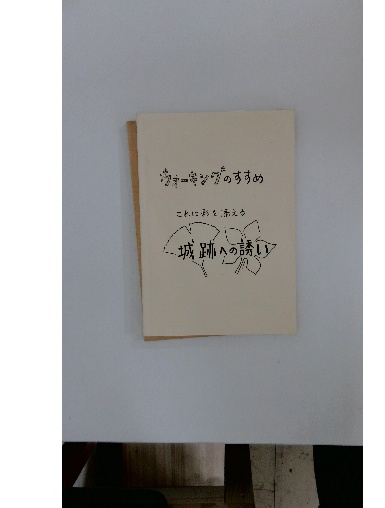 ウォーキングのすすめ
これに彩を添える
城跡への誘い